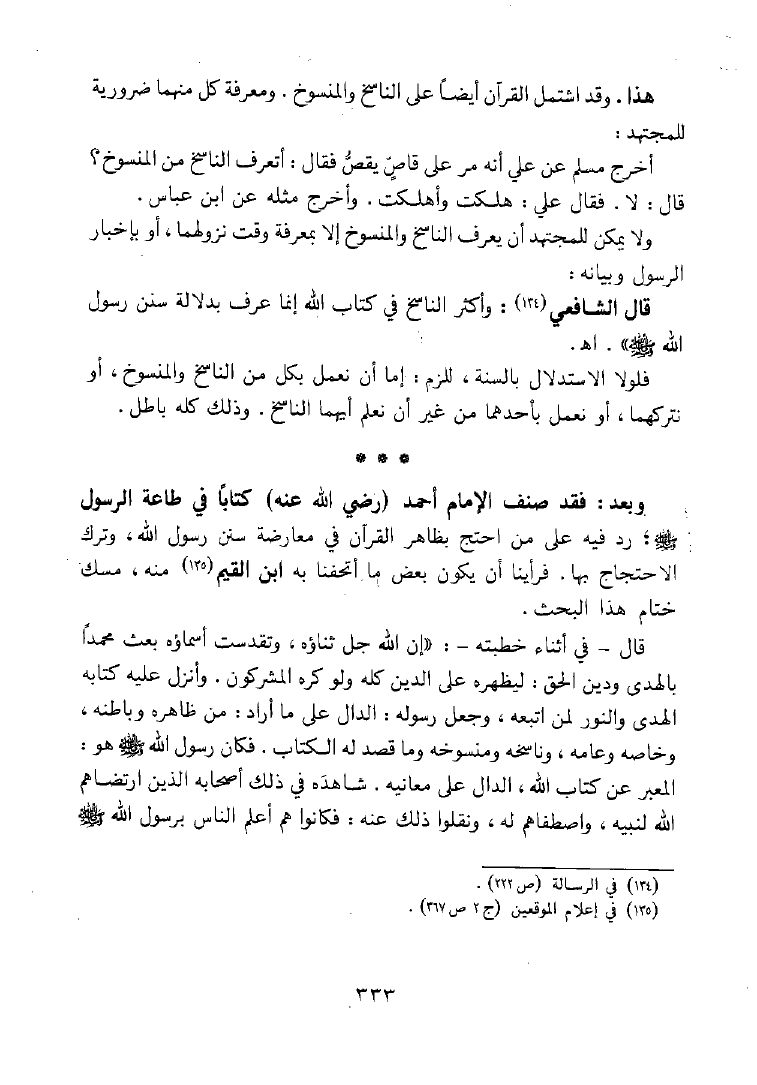 هذا . وقد اشتمل القرآن أيضاً على الناسخ والمنسوخ . ومعرفة كل منهما ضرورية
للمجتهد :
أخرج مسلم عن علي أنه مر على قاصٍّ يقصُّ فقال : أتعرف الناسخ من المنسوخ ؟
قال : لا . فقال علي : هلكت وأهلكت . وأخرج مثله عن ابن عباس .
ولا يمكن للمجتهد أن يعرف الناسخ والمنسوخ إلا بمعرفة وقت نزولهما ، أو بإخبار
الرسول وبيانه :
قال الشافعي (١٣٤) : وأكثر الناسخ في كتاب الله إنما عرف بدلالة سنن رسول
الله ﷺ» . اهـ .
فلولا الاستدلال بالسنة ، للزم : إما أن نعمل بكل من الناسخ والمنسوخ ، أو
نتركهما ، أو نعمل بأحدهما من غير أن نعلم أيهما الناسخ . وذلك كله باطل .
* * *
وبعد : فقد صنف الإمام أحمد (رضي الله عنه) كتابًا في طاعة الرسول
ﷺ ؛ رد فيه على من احتج بظاهر القرآن في معارضة سنن رسول الله ، وترك
الاحتجاج بها . فرأينا أن يكون بعض ما أتحفنا به ابن القيم (١٣٥) منه ، مسك
ختام هذا البحث .
قال - في أثناء خطبته - : «إن الله جل ثناؤه ، وتقدست أسماؤه بعث محمداً
بالهدى ودين الحق : ليظهره على الدين كله ولو كره المشركون . وأنزل عليه كتابه
الهدى والنور لمن اتبعه ، وجعل رسوله : الدال على ما أراد : من ظاهره وباطنه ،
وخاصه وعامه ، وناسخه ومنسوخه وما قصد له الكتاب . فكان رسول الله ﷺ هو :
المعبر عن كتاب الله ، الدال على معانيه . شاهدَه في ذلك أصحابه الذين ارتضاهم
الله لنبيه ، واصطفاهم له ، ونقلوا ذلك عنه : فكانوا هم أعلم الناس برسول الله ﷺ
(١٣٤) في الرسالة (ص ٢٢٢) .
(١٣٥) في إعلام الموقعين (ج ٢ ص ٣٦٧) .
٣٣٣